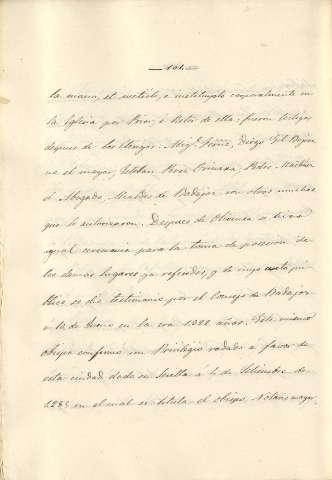 — 101. —
la mano, et metiolo, e instituyolo corporalmente en
la Iglesia por Prior, e Retor de ella: fueron testigos
despues de los clerigos. Mig.l Perez, Diego Gil Bejarano
no el mayor, Esteban Perez Crimana, Pedro Martinez
el Abogado, Alcaldes de Badajoz con otros muchos
que lo autorizaron. Despues de Olivenza se hizo
igual ceremonia para la toma de posesion de
los demas lugares ya referidos, y de cuyo acto pu-
blico se dio testimonio por el Concejo de Badajoz
en 10 de Enero en la era 1322 años. Este mismo
obispo confirmó un Privilegio rodado a favor de
esta ciudad dado en Sevilla á 4 de Setiembre de
1285 en el cual se titula el obispo, Notario mayor